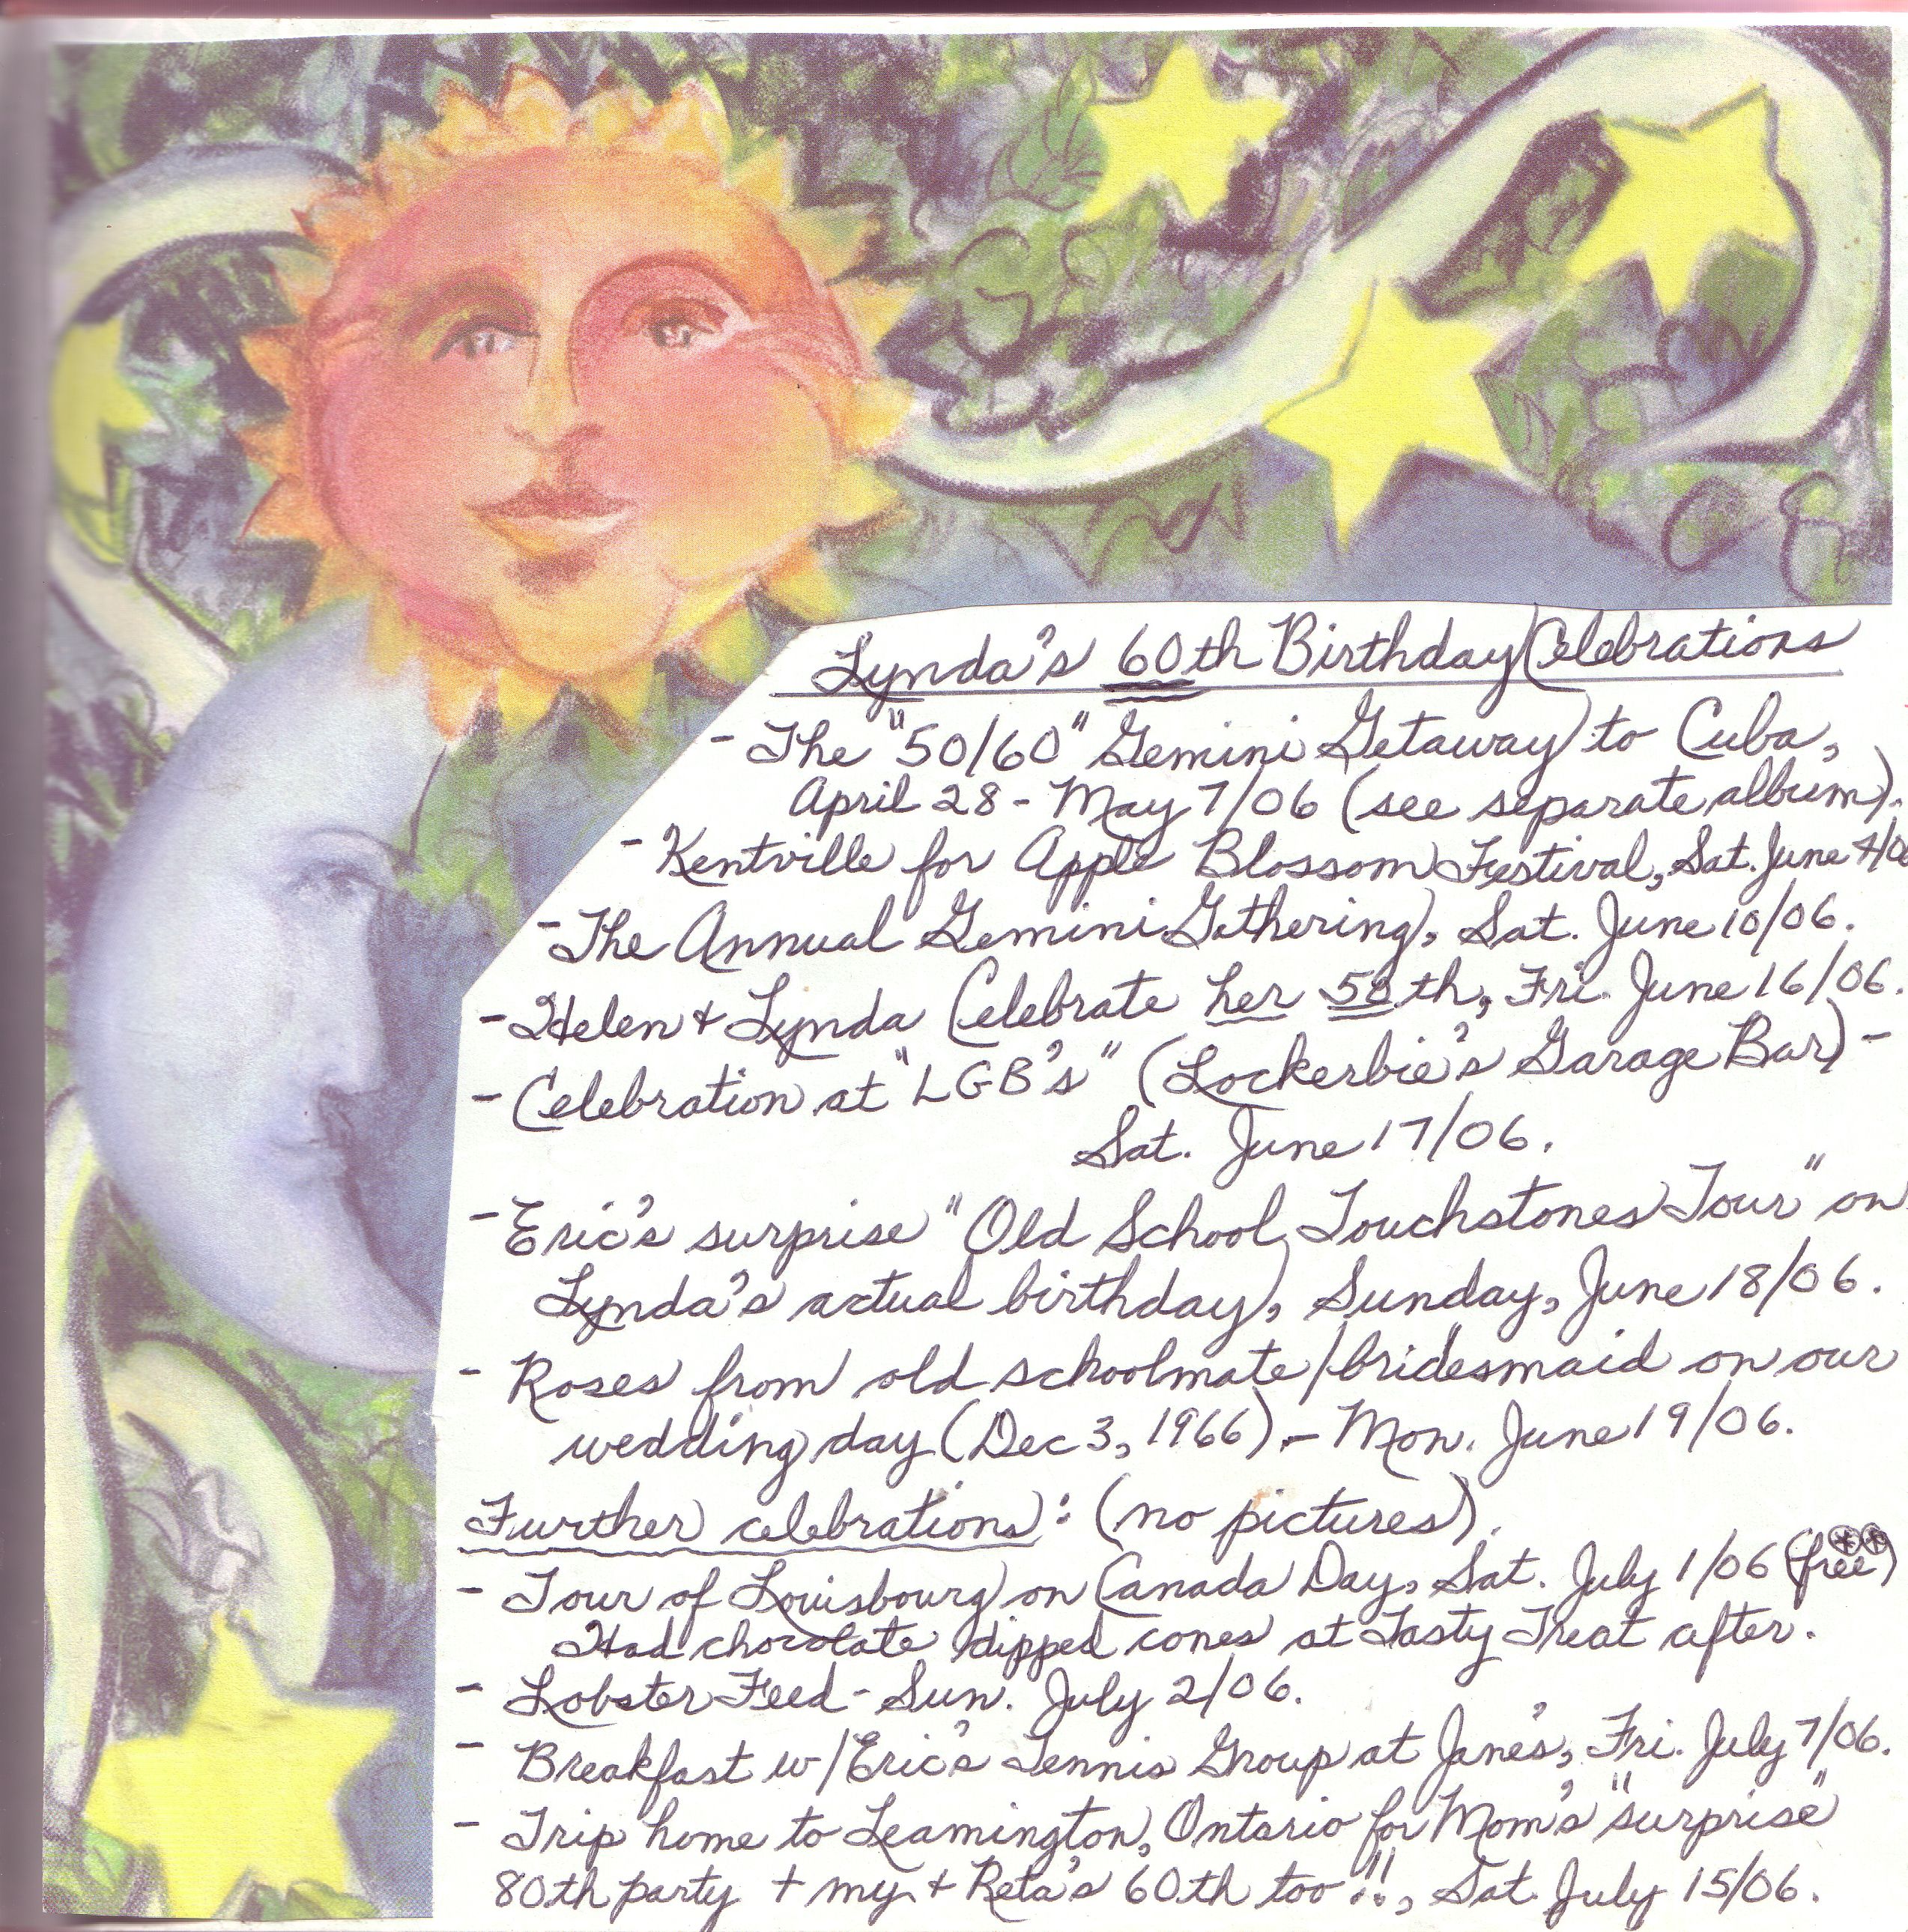 Lynda's 60th Birthday Celebrations
- The "50/60" Gemini Getaway to Cuba,
April 28 - May 7/06 (see separate album).
- Kentville for Apple Blossom Festival, Sat. June
- The Annual Gemini Gathering, Sat. June 10/06.
- Helen + Lynda Celebrate her 50th, Fri. June 16/06.
- Celebration at "LGB's" (Lockerbie's Garage Bar) -
Sat. June 17/06.
- Eric's surprise "Old School Touchstones Tour" on
Lynda's actual birthday, Sunday, June 18/06.
- Roses from old schoolmate/bridesmaid on our
wedding day (Dec 3, 1966). - Mon. June 19/06.
Further celebrations: (no pictures).
- Tour of Louisbourg on Canada Day, Sat. July 1/06 (free)
Had chocolate dipped cones at Tasty Treat after.
- Lobster Feed - Sun. July 2/06.
- Breakfast w/Eric's Tennis Group at Jane's, Fri. July 7/06.
- Trip home to Leamington, Ontario for Mom's "surprise"
80th party + my + Reta's 60th too!!, Sat. July 15/06.